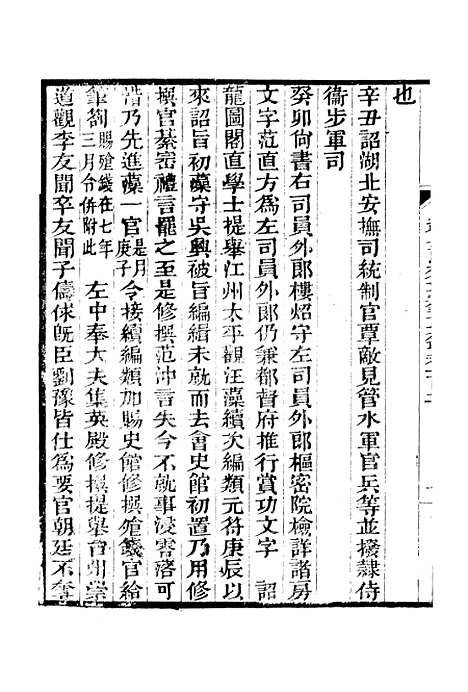 也
辛丑詔湖北安撫司統制官覃敵見管水軍官兵等並撥隸侍
衞步軍司
癸卯尙書右司員外郎樓炤守左司員外郎樞密院檢詳諸房
文字范直方爲左司員外郎仍兼都督府推行賞功文字 詔
龍圖閣直學士提舉江州太平觀汪藻續次編類元符庚辰以
來詔旨初藻守吳興被旨編緝未就而去會史館初置乃用修
撰官綦崈禮言罷之至是修撰范沖言失今不就事浸零落可
惜乃先進藻一官是月庚子令接續編類加賜史館修撰飱錢官給
筆劄賜飱錢在七年三月今併附此 左中奉大夫集英殿修撰提舉台州崇
道觀李友聞卒友聞子儔俅旣臣劉豫皆仕爲要官朝廷不奪